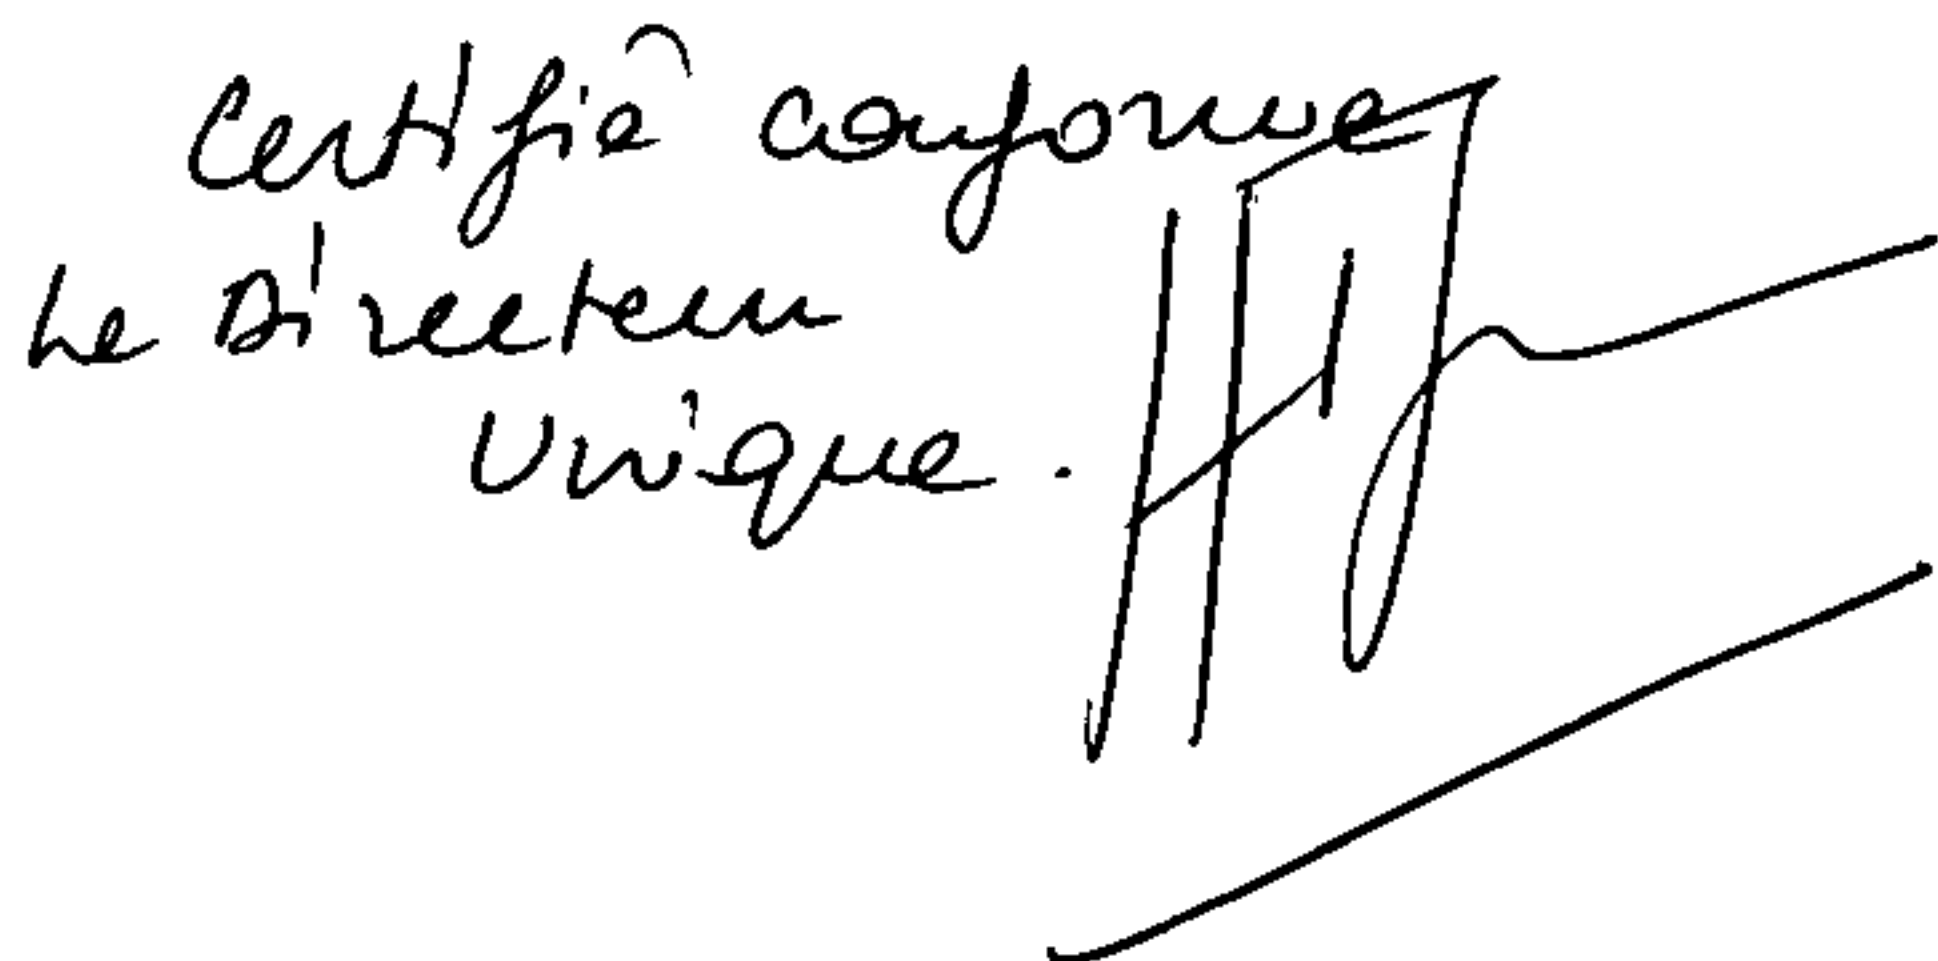 Certifié conforme
Le Directeur
Unique.